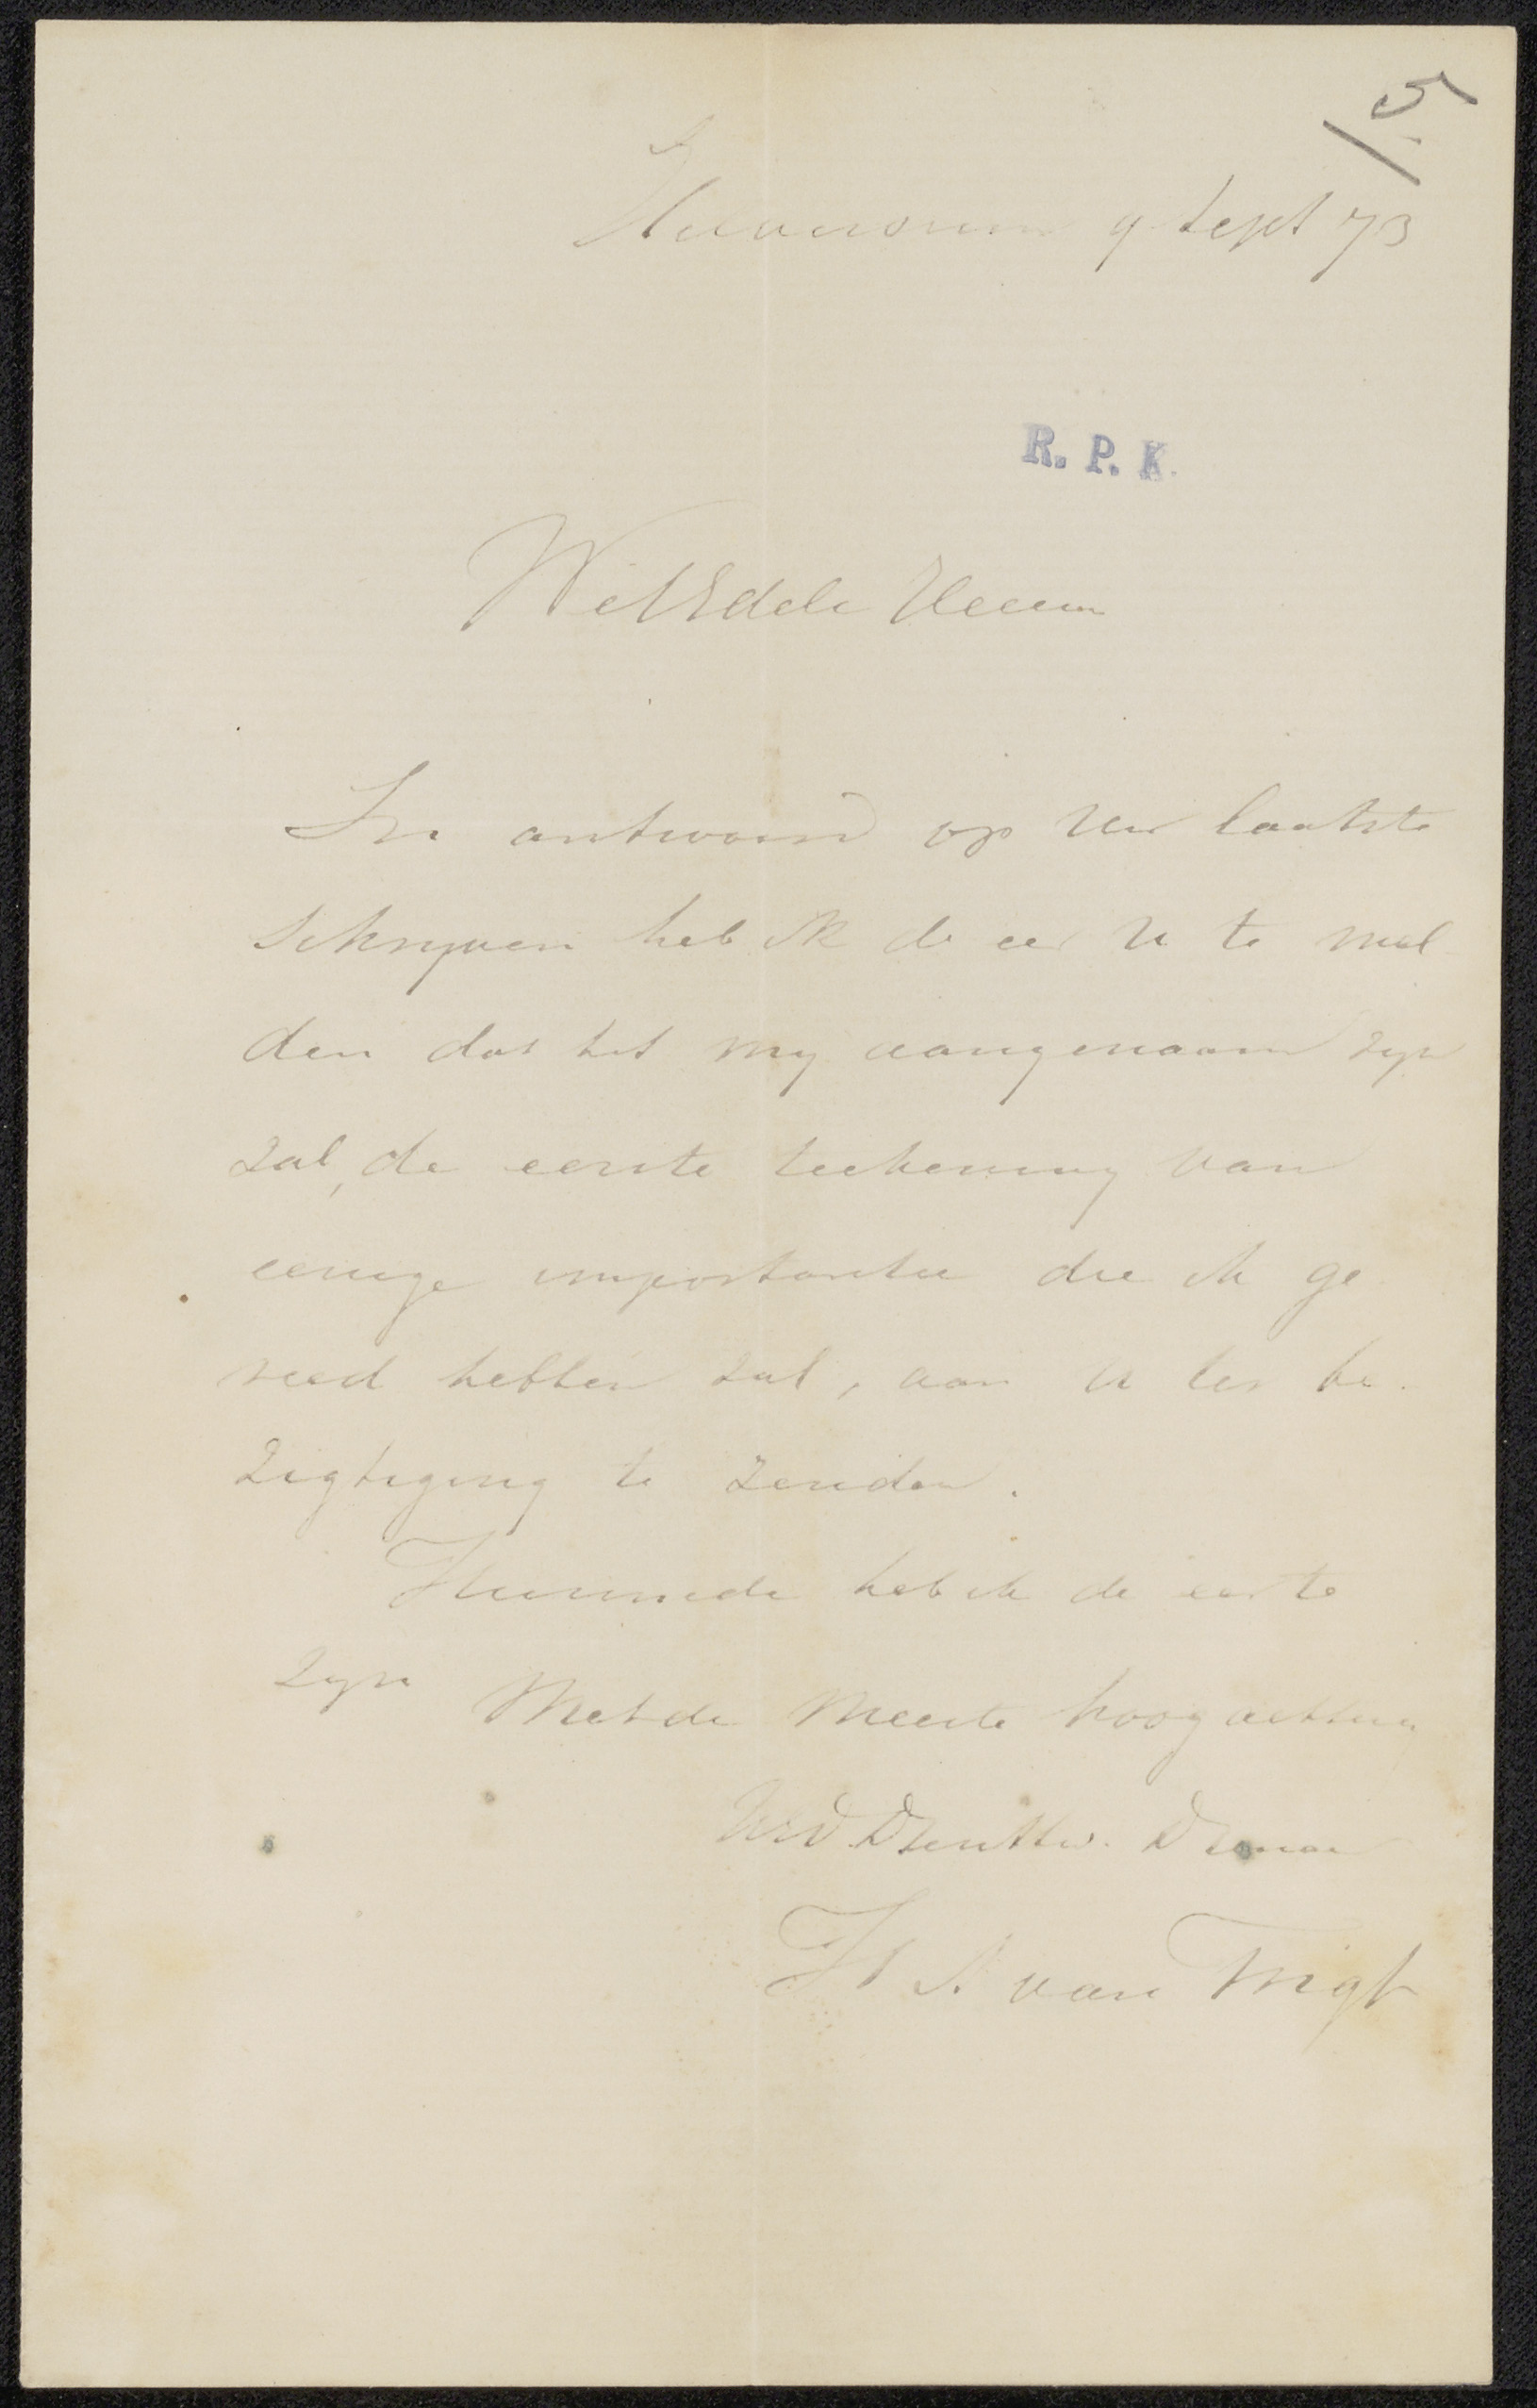 5
Hilversum 9 Sept 73
R. P. K.
WelEdele Heer
In antwoord op Uw laatste
schryven heb ik de eer U te mel
den dat het my aangenaam zyn
zal, de eerste teekening van
eenige importantie die ik ge
reed hebben zal, aan U ter be.
zigtiging te zenden.
Hiermede heb ik de eer te
zyn Met de Meeste hoogachting
UEd Dienstw. Dienaar
H A van Trigt